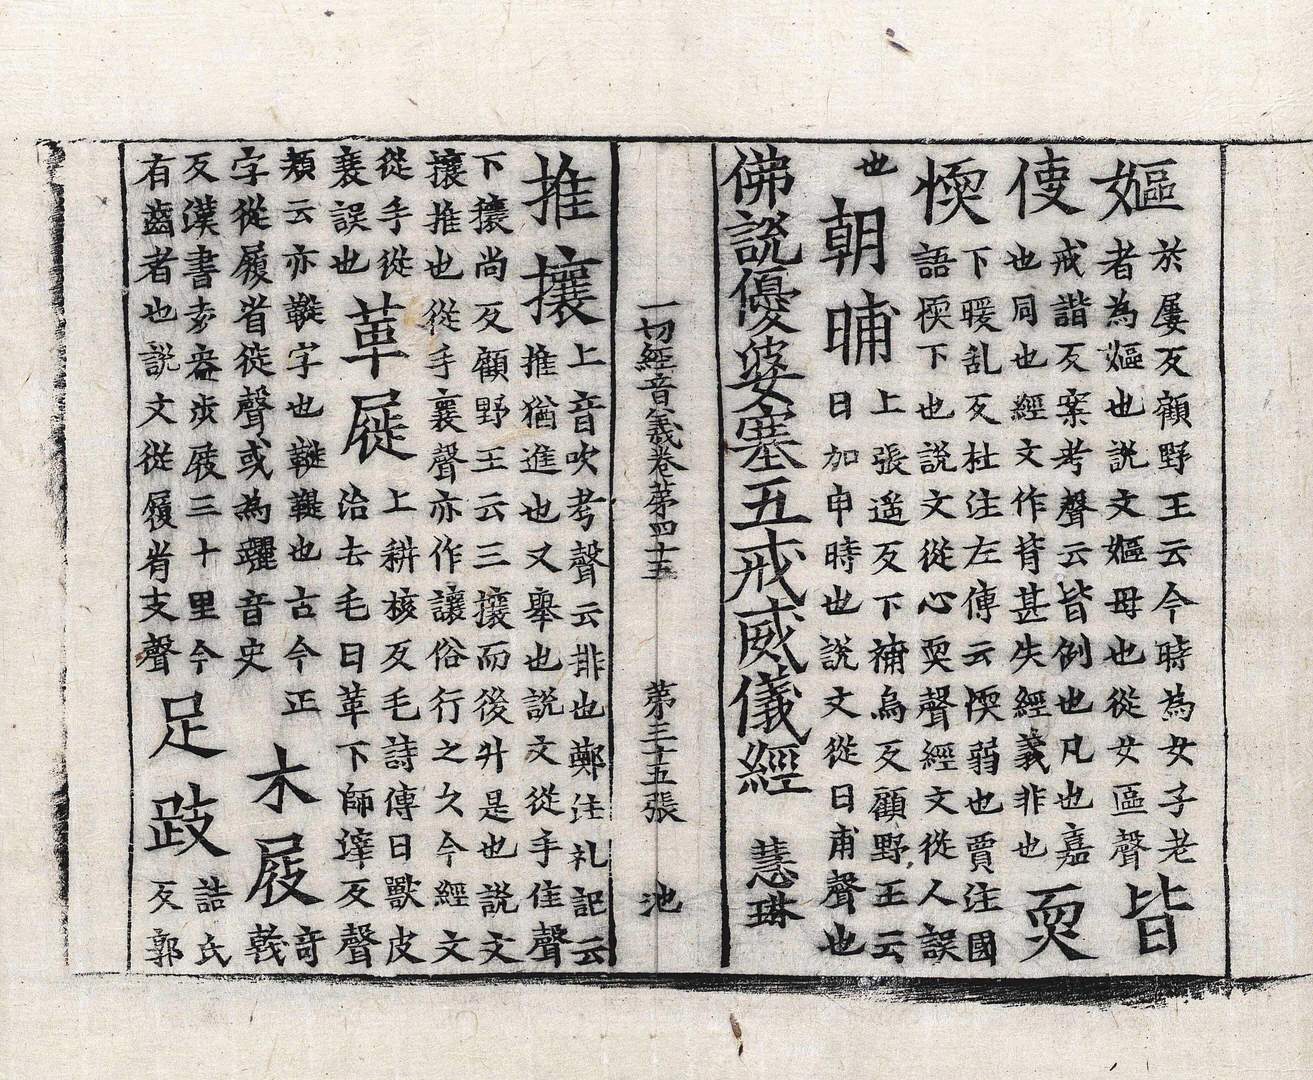 嫗
於屢反顧野王云今時為女子老
者為嫗也説文嫗母也從女區聲
皆
使
戒諧反案考聲云皆倒也凡也嘉
也同也經文作揹甚失經義非也
耎
愞
下暖乱反杜注左傳云愞弱也賈注國
語愞下也説文從心耎聲經文從人誤
也
朝晡
上張遥反下補烏反顧野王云
日加申時也説文從日甫聲也
佛説優婆塞五戒威儀經 慧琳
一切經音義卷苐四十五 苐三十五張 池
推攘
上音吹考聲云排也鄭注礼記云
推猶進也又舉也説文從手隹聲
下攘尚反顧野王云三攘而後升是也説文
攘推也從手襄聲亦作讓俗行之久今經文
從手從
襄誤也
革屣
上耕核反毛詩傳曰獸皮
治去毛曰革下師滓反聲
類云亦字也鞮也古今正
字從履省徙聲或為音史
木屐
竒
㦸
反漢書袁盎步屐三十里今
有齒者也説文從履省支聲
足跂
詰氏
反郭